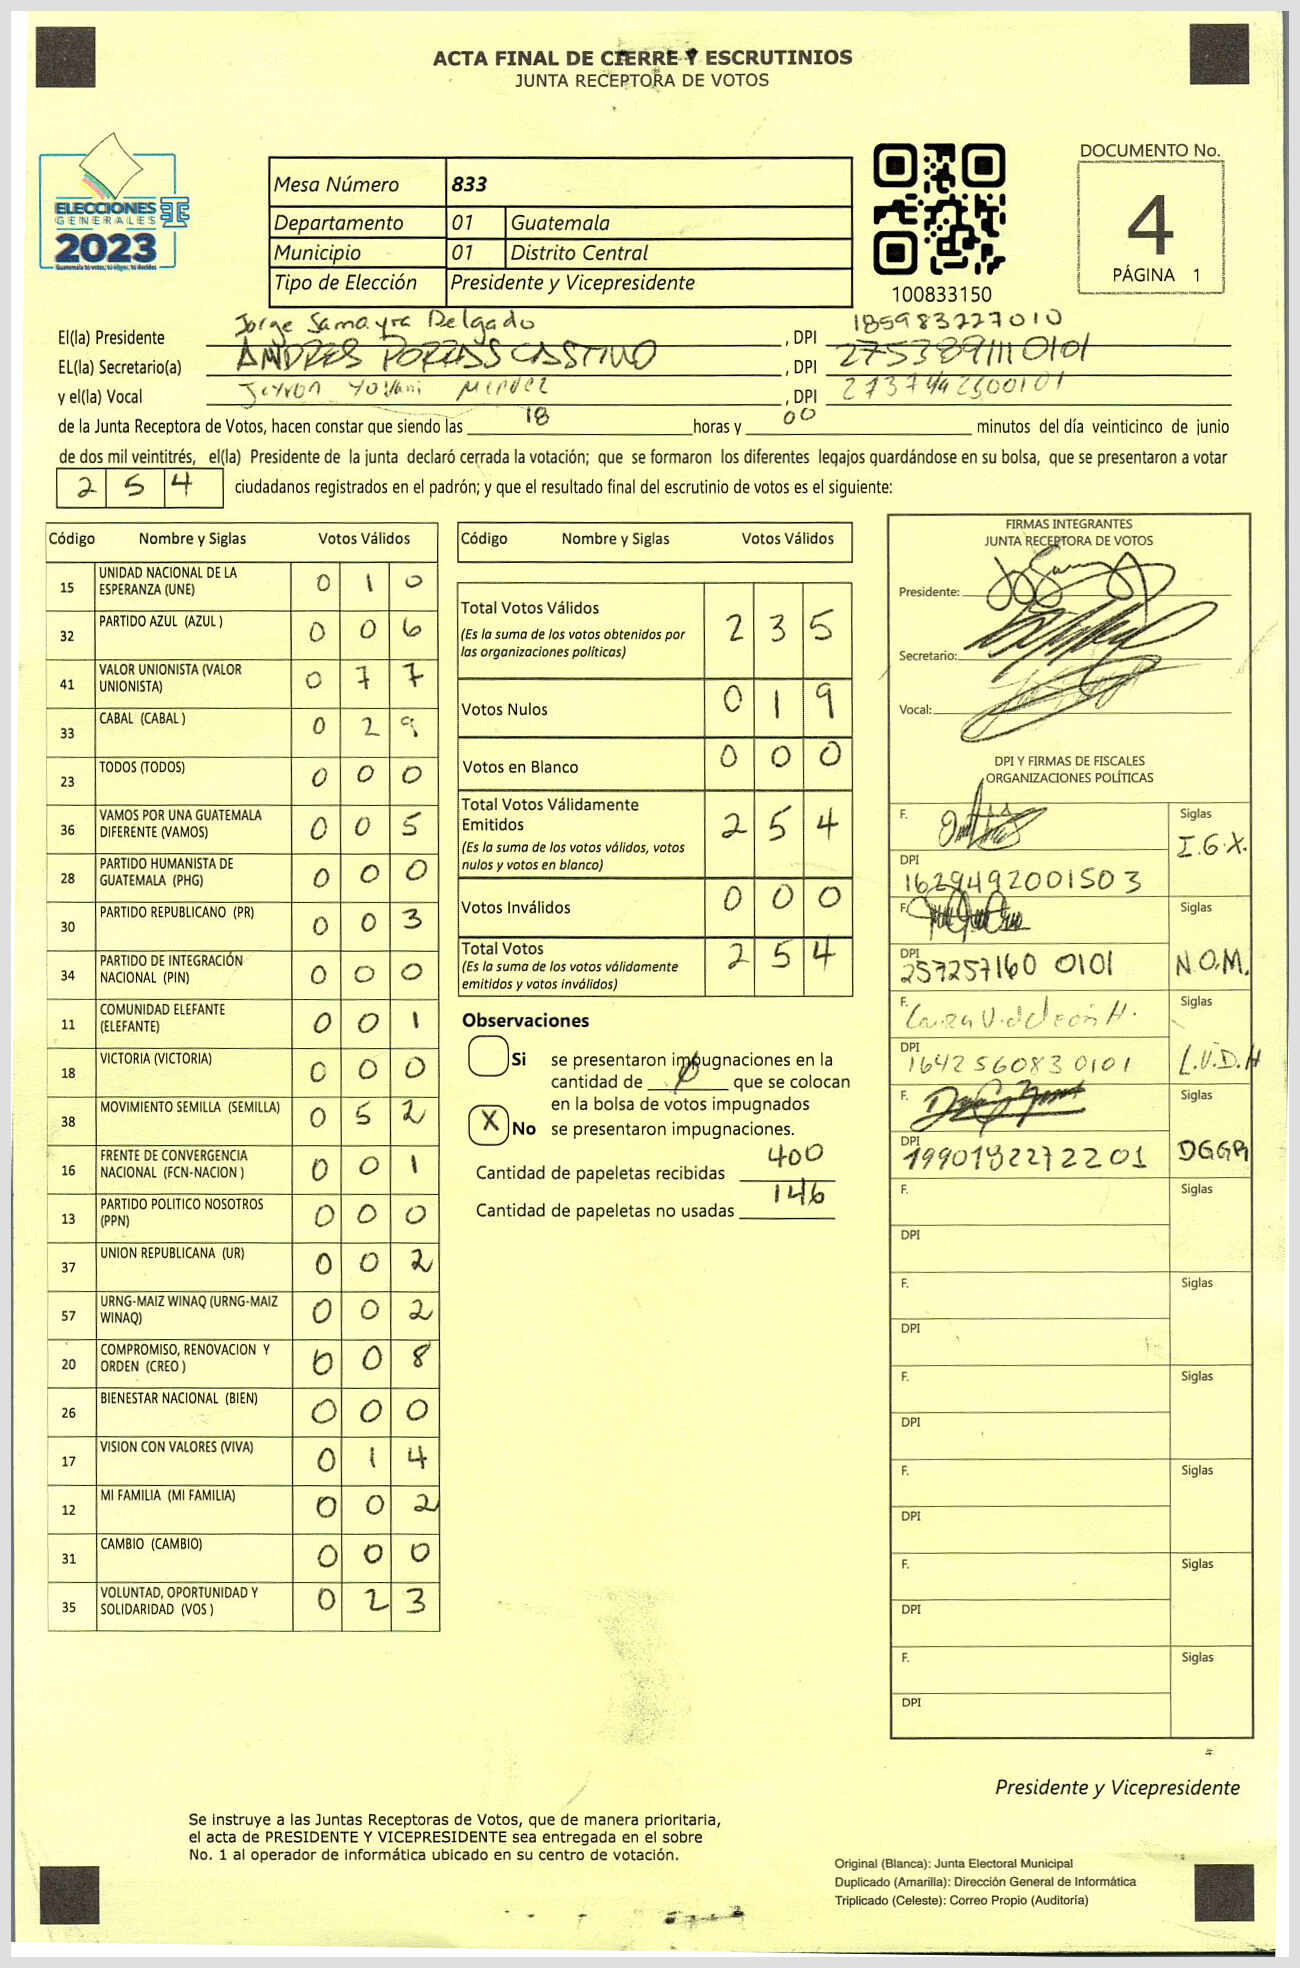 ACTA FINAL DE CIERRE Y ESCRUTINIOS
JUNTA RECEPTORA DE VOTOS
ELECCIONES
GENERALES
2023
Guatemala tú votas, tú eliges, tú decides
Mesa Número 833
Departamento 01 Guatemala
Municipio 01 Distrito Central
Tipo de Elección Presidente y Vicepresidente
100833150
DOCUMENTO No.
4
PÁGINA 1
El(la) Presidente Jorge Samayra Delgado, DPI 185983227010
EL(la) Secretario(a) ANDRES PORRAS CASTILLO, DPI 2753891110101
y el(la) Vocal Jeyron Yovani Mendez, DPI 2737442300101
de la Junta Receptora de Votos, hacen constar que siendo las 18 horas y 00 minutos del día veinticinco de junio
de dos mil veintitrés, el(la) Presidente de la junta declaró cerrada la votación; que se formaron los diferentes legajos guardándose en su bolsa, que se presentaron a votar
254 ciudadanos registrados en el padrón; y que el resultado final del escrutinio de votos es el siguiente:
Código Nombre y Siglas Votos Válidos
15 UNIDAD NACIONAL DE LA ESPERANZA (UNE) 0 1 0
32 PARTIDO AZUL (AZUL ) 0 0 6
41 VALOR UNIONISTA (VALOR UNIONISTA) 0 7 7
33 CABAL (CABAL ) 0 2 9
23 TODOS (TODOS) 0 0 0
36 VAMOS POR UNA GUATEMALA DIFERENTE (VAMOS) 0 0 5
28 PARTIDO HUMANISTA DE GUATEMALA (PHG) 0 0 0
30 PARTIDO REPUBLICANO (PR) 0 0 3
34 PARTIDO DE INTEGRACIÓN NACIONAL (PIN) 0 0 0
11 COMUNIDAD ELEFANTE (ELEFANTE) 0 0 1
18 VICTORIA (VICTORIA) 0 0 0
38 MOVIMIENTO SEMILLA (SEMILLA) 0 5 2
16 FRENTE DE CONVERGENCIA NACIONAL (FCN-NACION ) 0 0 1
13 PARTIDO POLITICO NOSOTROS (PPN) 0 0 0
37 UNION REPUBLICANA (UR) 0 0 2
57 URNG-MAIZ WINAQ (URNG-MAIZ WINAQ) 0 0 2
20 COMPROMISO, RENOVACION Y ORDEN (CREO ) 0 0 8
26 BIENESTAR NACIONAL (BIEN) 0 0 0
17 VISION CON VALORES (VIVA) 0 1 4
12 MI FAMILIA (MI FAMILIA) 0 0 2
31 CAMBIO (CAMBIO) 0 0 0
35 VOLUNTAD, OPORTUNIDAD Y SOLIDARIDAD (VOS ) 0 2 3
Código Nombre y Siglas Votos Válidos
Total Votos Válidos 2 3 5
(Es la suma de los votos obtenidos por
las organizaciones políticas)
Votos Nulos 0 1 9
Votos en Blanco 0 0 0
Total Votos Válidamente
Emitidos 2 5 4
(Es la suma de los votos válidos, votos
nulos y votos en blanco)
Votos Inválidos 0 0 0
Total Votos 2 5 4
(Es la suma de los votos válidamente
emitidos y votos inválidos)
Observaciones
Si se presentaron impugnaciones en la
cantidad de 0 que se colocan
en la bolsa de votos impugnados
X No se presentaron impugnaciones.
Cantidad de papeletas recibidas 400
Cantidad de papeletas no usadas 146
FIRMAS INTEGRANTES
JUNTA RECEPTORA DE VOTOS
Presidente:
Secretario:
Vocal:
DPI Y FIRMAS DE FISCALES
ORGANIZACIONES POLÍTICAS
F. Siglas I.G.X.
DPI 1629492001503
F. Siglas N.O.M.
DPI 257257160 0101
F. Siglas L.V.D.H
DPI 1642560830101
F. Siglas DGGR
DPI 1990182272201
F. Siglas
DPI
F. Siglas
DPI
F. Siglas
DPI
F. Siglas
DPI
F. Siglas
DPI
F. Siglas
DPI
Presidente y Vicepresidente
Se instruye a las Juntas Receptoras de Votos, que de manera prioritaria,
el acta de PRESIDENTE Y VICEPRESIDENTE sea entregada en el sobre
No. 1 al operador de informática ubicado en su centro de votación.
Original (Blanca): Junta Electoral Municipal
Duplicado (Amarilla): Dirección General de Informática
Triplicado (Celeste): Correo Propio (Auditoría)